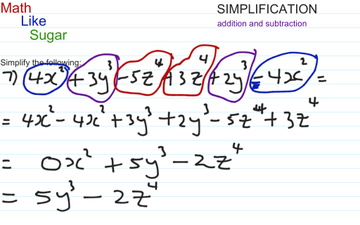 Math
Like
Sugar
SIMPLIFICATION
addition and subtraction
Simplify the following:
7) 4x² + 3y³ - 5z⁴ + 3z⁴ + 2y³ - 4x² =
= 4x² - 4x² + 3y³ + 2y³ - 5z⁴ + 3z⁴
= 0x² + 5y³ - 2z⁴
= 5y³ - 2z⁴